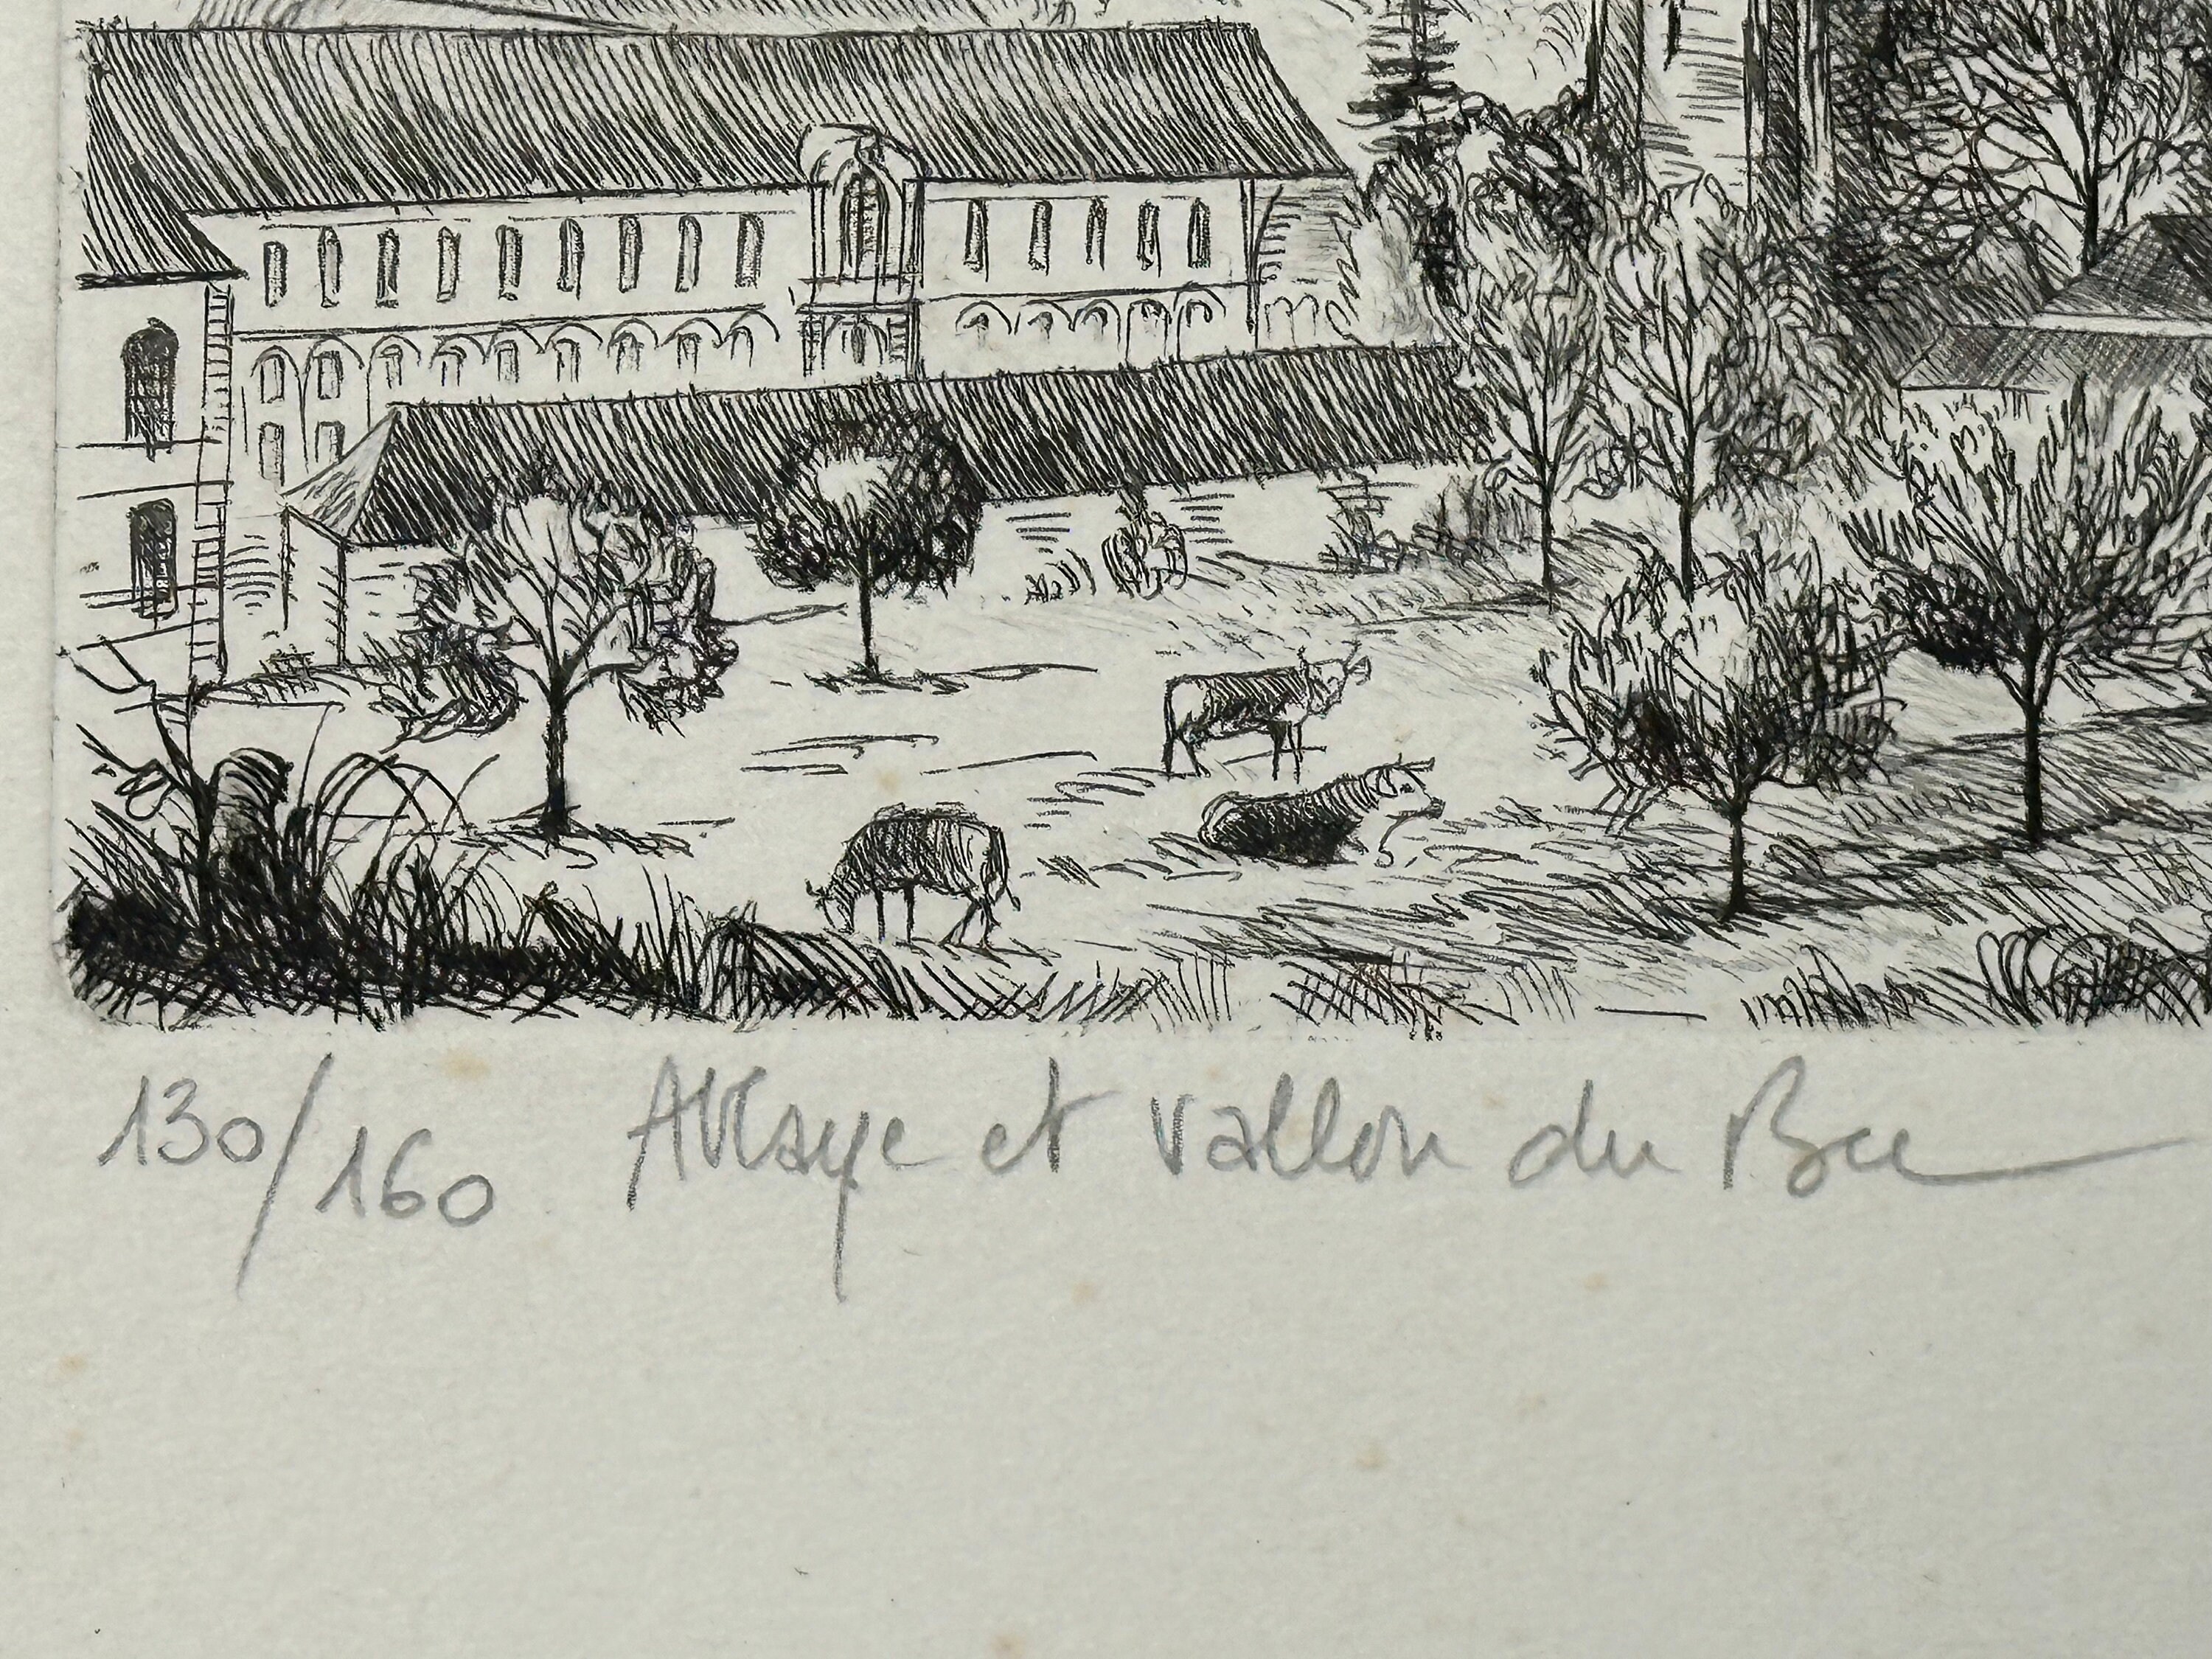 130/160 Abbaye et vallon du Bec